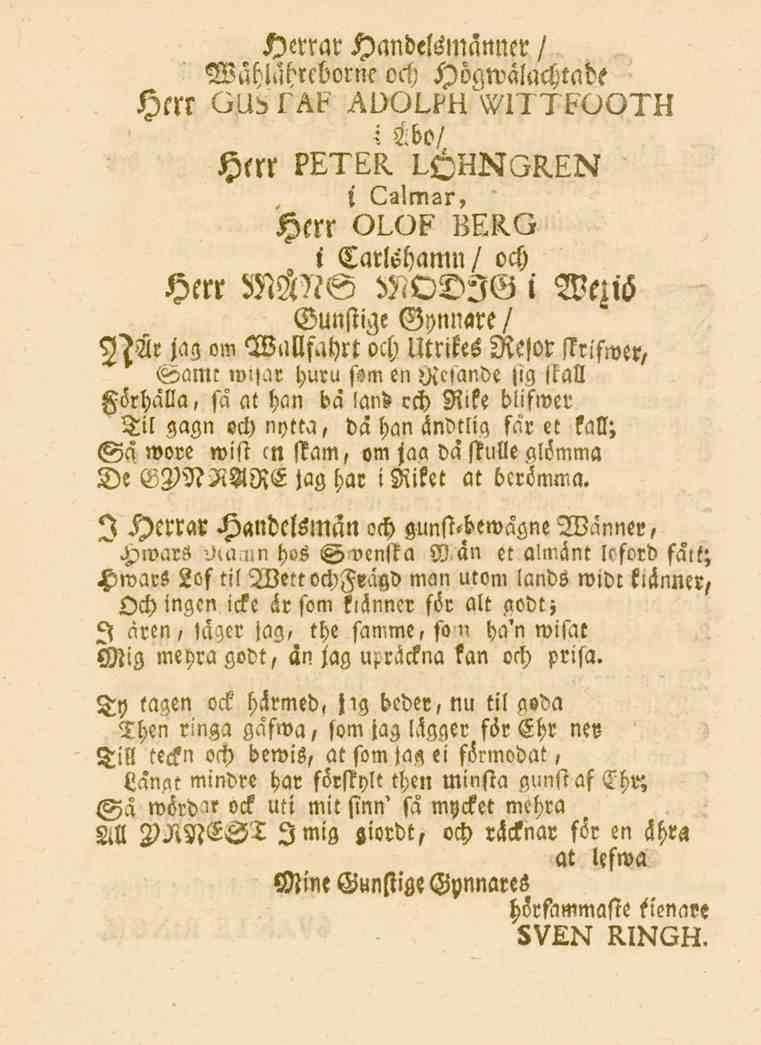 Herrar Handelsmånner /
Wåhlåhreborne och Högwålachtade
Herr GUSTAF ADOLPH WITTFOOTH
i Åbo/
Herr PETER LÖHNGREN
i Calmar,
Herr OLOF BERG
i Carlshamn / och
Herr MÅNS MODIG i Wexiö
Gunstige Gynnare /
NÅr jag om Wallfahrt och Utrikes Resor skrifwer,
Samt wisar huru som en Resande sig skall
Förhålla, så at han bå land och Rike blifwer
Til gagn och nytta, då han åndtlig får et kall;
Så wore wist en skam, om jag då skulle glömma
De GYNNARE jag har i Riket at berömma.
I Herrar Handelsmån och gunst-bewågne Wånner,
Hwars Namn hos Swenska Mån et almånt loford fått;
Hwars Lof til Wett och Frågd man utom lands widt kiånner,
Och ingen icke år som kiånner för alt godt;
I åren, såger jag, the samme, som ha'n wisat
Mig meyra godt, ån jag upråckna kan och prisa.
Ty tagen ock hårmed, jag beder, nu til goda
Then ringa gåfwa, som jag lågger för Ehr ner
Till teckn och bewis, at som jag ei förmodat,
Långt mindre har förskylt then minsta gunst af Ehr;
Så wördar ock uti mit sinn' så mycket mehra
All YNNEST I mig giordt, och råcknar för en åhra
at lefwa
Mine Gunstige Gynnares
hörsammaste tienare
SVEN RINGH.